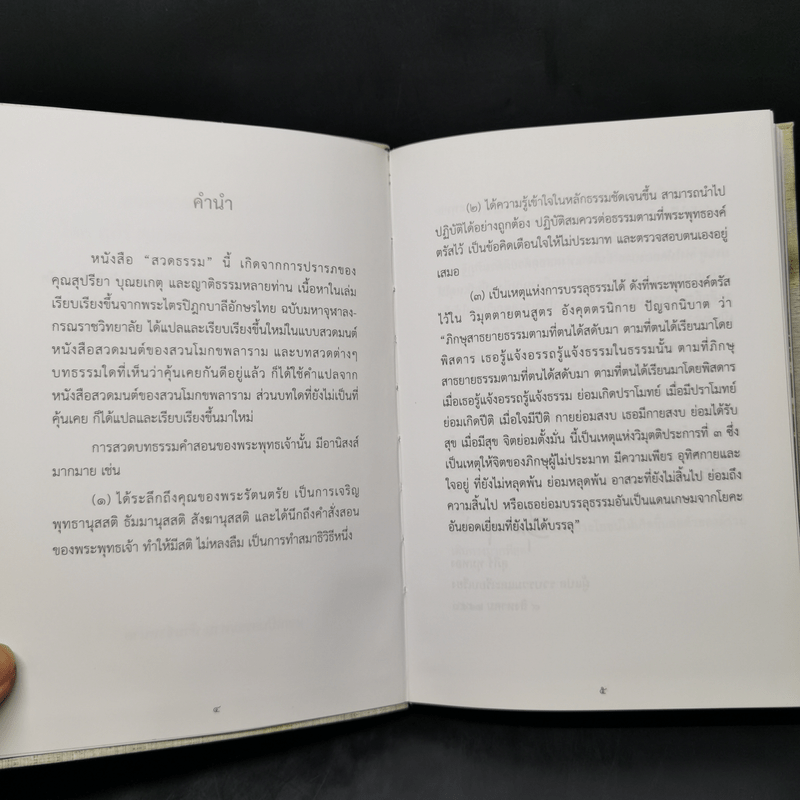 คำนำ
หนังสือ “สวดธรรม” นี้ เกิดจากการปรารภของ
คุณสุปรียา บุณยเกตุ และญาติธรรมหลายท่าน เนื้อหาในเล่ม
เรียบเรียงขึ้นจากพระไตรปิฎกบาลีอักษรไทย ฉบับมหาจุฬาลง-
กรณราชวิทยาลัย ได้แปลและเรียบเรียงขึ้นใหม่ในแบบสวดมนต์
หนังสือสวดมนต์ของสวนโมกขพลาราม และบทสวดต่างๆ
บทธรรมใดที่เห็นว่าคุ้นเคยกันดีอยู่แล้ว ก็ได้ใช้คำแปลจาก
หนังสือสวดมนต์ของสวนโมกขพลาราม ส่วนบทใดที่ยังไม่เป็นที่
คุ้นเคย ก็ได้แปลและเรียบเรียงขึ้นมาใหม่
การสวดบทธรรมคำสอนของพระพุทธเจ้านั้น มีอานิสงส์
มากมาย เช่น
(๑) ได้ระลึกถึงคุณของพระรัตนตรัย เป็นการเจริญ
พุทธานุสสติ ธัมมานุสสติ สังฆานุสสติ และได้นึกถึงคำสั่งสอน
ของพระพุทธเจ้า ทำให้มีสติ ไม่หลงลืม เป็นการทำสมาธิวิธีหนึ่ง
๔
(๒) ได้ความรู้เข้าใจในหลักธรรมชัดเจนขึ้น สามารถนำไป
ปฏิบัติได้อย่างถูกต้อง ปฏิบัติสมควรต่อธรรมตามที่พระพุทธองค์
ตรัสไว้ เป็นข้อคิดเตือนใจให้ไม่ประมาท และตรวจสอบตนเองอยู่
เสมอ
(๓) เป็นเหตุแห่งการบรรลุธรรมได้ ดังที่พระพุทธองค์ตรัส
ไว้ใน วิมุตตายตนสูตร อังคุตตรนิกาย ปัญจกนิบาต ว่า
“ภิกษุสาธยายธรรมตามที่ตนได้สดับมา ตามที่ตนได้เรียนมาโดย
พิสดาร เธอรู้แจ้งอรรถรู้แจ้งธรรมในธรรมนั้น ตามที่ภิกษุ
สาธยายธรรมตามที่ตนได้สดับมา ตามที่ตนได้เรียนมาโดยพิสดาร
เมื่อเธอรู้แจ้งอรรถรู้แจ้งธรรม ย่อมเกิดปราโมทย์ เมื่อมีปราโมทย์
ย่อมเกิดปีติ เมื่อใจมีปีติ กายย่อมสงบ เธอมีกายสงบ ย่อมได้รับ
สุข เมื่อมีสุข จิตย่อมตั้งมั่น นี้เป็นเหตุแห่งวิมุตติประการที่ ๓ ซึ่ง
เป็นเหตุให้จิตของภิกษุผู้ไม่ประมาท มีความเพียร อุทิศกายและ
ใจอยู่ ที่ยังไม่หลุดพ้น ย่อมหลุดพ้น อาสวะที่ยังไม่สิ้นไป ย่อมถึง
ความสิ้นไป หรือเธอย่อมบรรลุธรรมอันเป็นแดนเกษมจากโยคะ
อันยอดเยี่ยมที่ยังไม่ได้บรรลุ”
๕